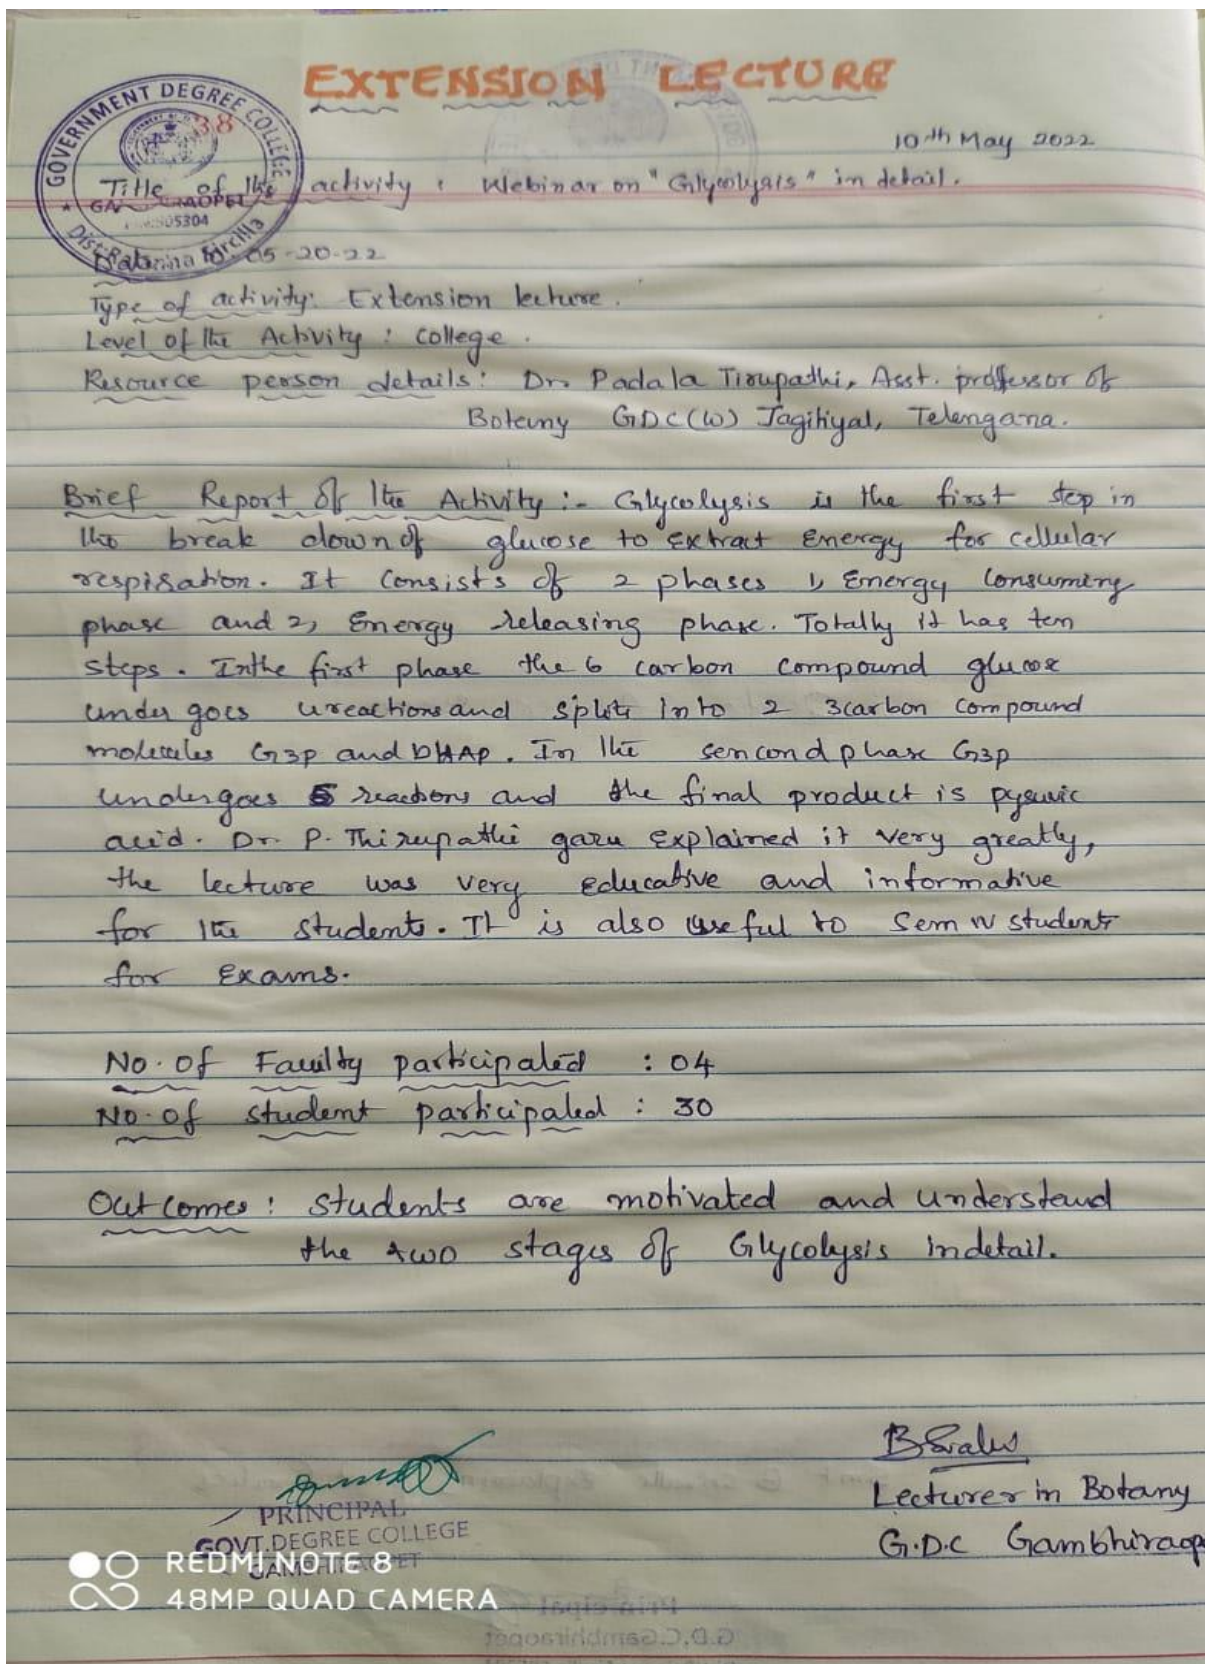 EXTENSION LECTURE
GOVERNMENT DEGREE COLLEGE
38
505304
10th May 2022
Title of the activity : Webinar on "Glycolysis" in detail.
05-20-22
Type of activity: Extension lecture.
Level of the Activity : college.
Resource person details: Dr. Padala Tirupathi, Asst. proffessor of
Botany GDC(W) Jagitiyal, Telengana.
Brief Report of the Activity :- Glycolysis is the first step in
the break down of glucose to extract Energy for cellular
respiration. It consists of 2 phases 1, Energy consuming
phase and 2, Energy releasing phase. Totally it has ten
steps. Inthe first phase the 6 carbon compound glucose
under goes reactions and splits into 2 3carbon compound
molecules G3P and DHAP. In the sencond phase G3p
undergoes 5 reactions and the final product is pyruvic
acid. Dr. P. Thirupathi garu explained it very greatly,
the lecture was very educative and informative
for the students. It is also useful to Sem IV students
for Exams.
No. of Faculty participated : 04
No. of student participated : 30
Outcomes : students are motivated and understand
the two stages of Glycolysis indetail.
Lecturer in Botany
G.D.C Gambhiraop
PRINCIPAL
GOVT.DEGREE COLLEGE
GAMBHIRAOPET
REDMI NOTE 8
48MP QUAD CAMERA